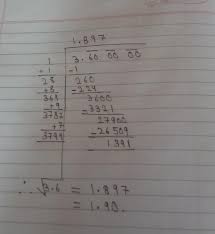 1.897
1 3.60 00 00
+1 -1
28 260
+8 -224
368 3600
+9 -3321
3782 27900
+7 -26509
3794 1391
∴ √3.6 = 1.897
= 1.90.